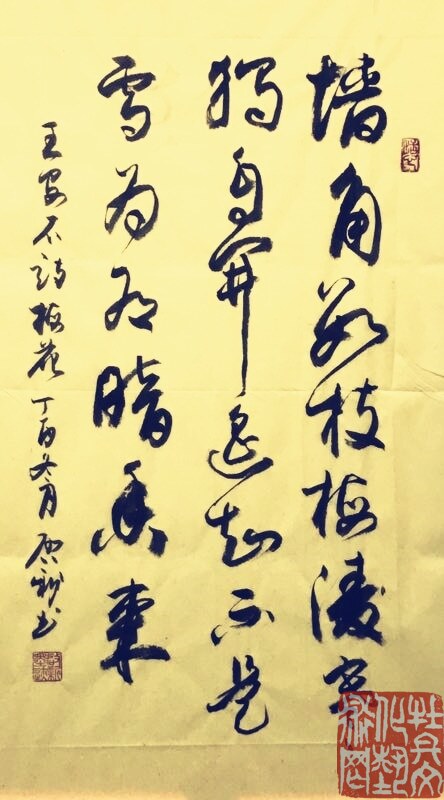 墙角数枝梅凌寒
独自开遥知不是
雪为有暗香来
王安石诗梅花 丁酉冬月 书